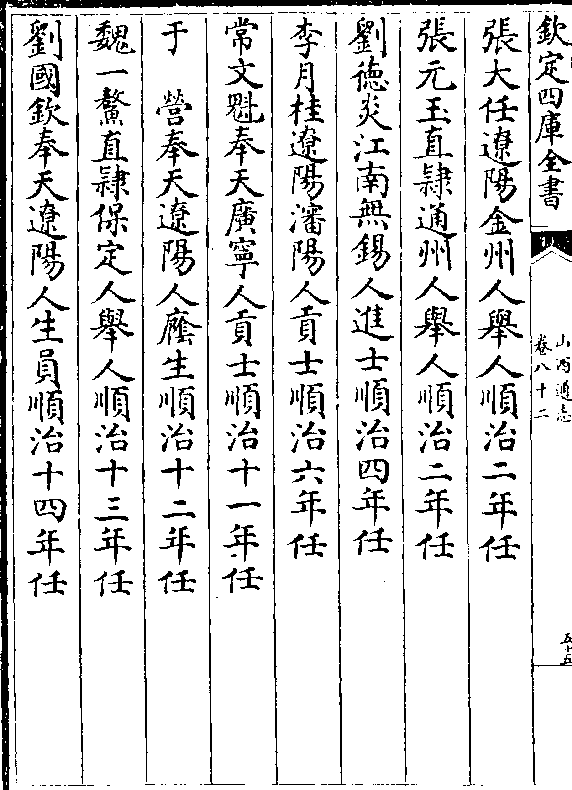 欽定四庫全書
山西通志
卷八十二
五十五
張大任遼陽金州人舉人順治二年任
張元玉直隷通州人舉人順治二年任
劉德炎江南無錫人進士順治四年任
李月桂遼陽瀋陽人貢士順治六年任
常文魁奉天廣寧人貢士順治十一年任
于　營奉天遼陽人廕生順治十二年任
魏一鰲直隷保定人舉人順治十三年任
劉國欽奉天遼陽人生員順治十四年任